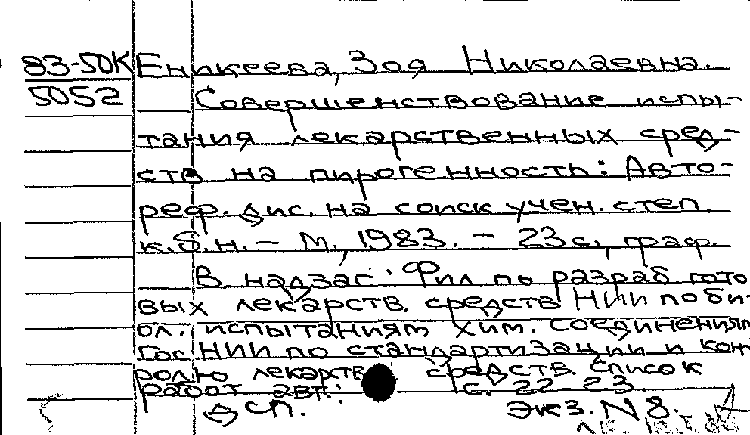 83-50К Еникеева, Зоя Николаевна.
5052 Совершенствование испы-
тания лекарственных сред-
ств на пирогенность: Авто-
реф. дис. на соиск учен. степ.
к.б.н. - М., 1983. - 23 с., граф.
В надзаг: Фил по разраб гото
вых лекарств. средств НИИ по би-
ол. испытаниям хим. соединений
Гос НИИ по стандартизации и кон
ролю лекарств средств Список
работ авт.: с. 22-23.
ДСП. Экз. N 8.